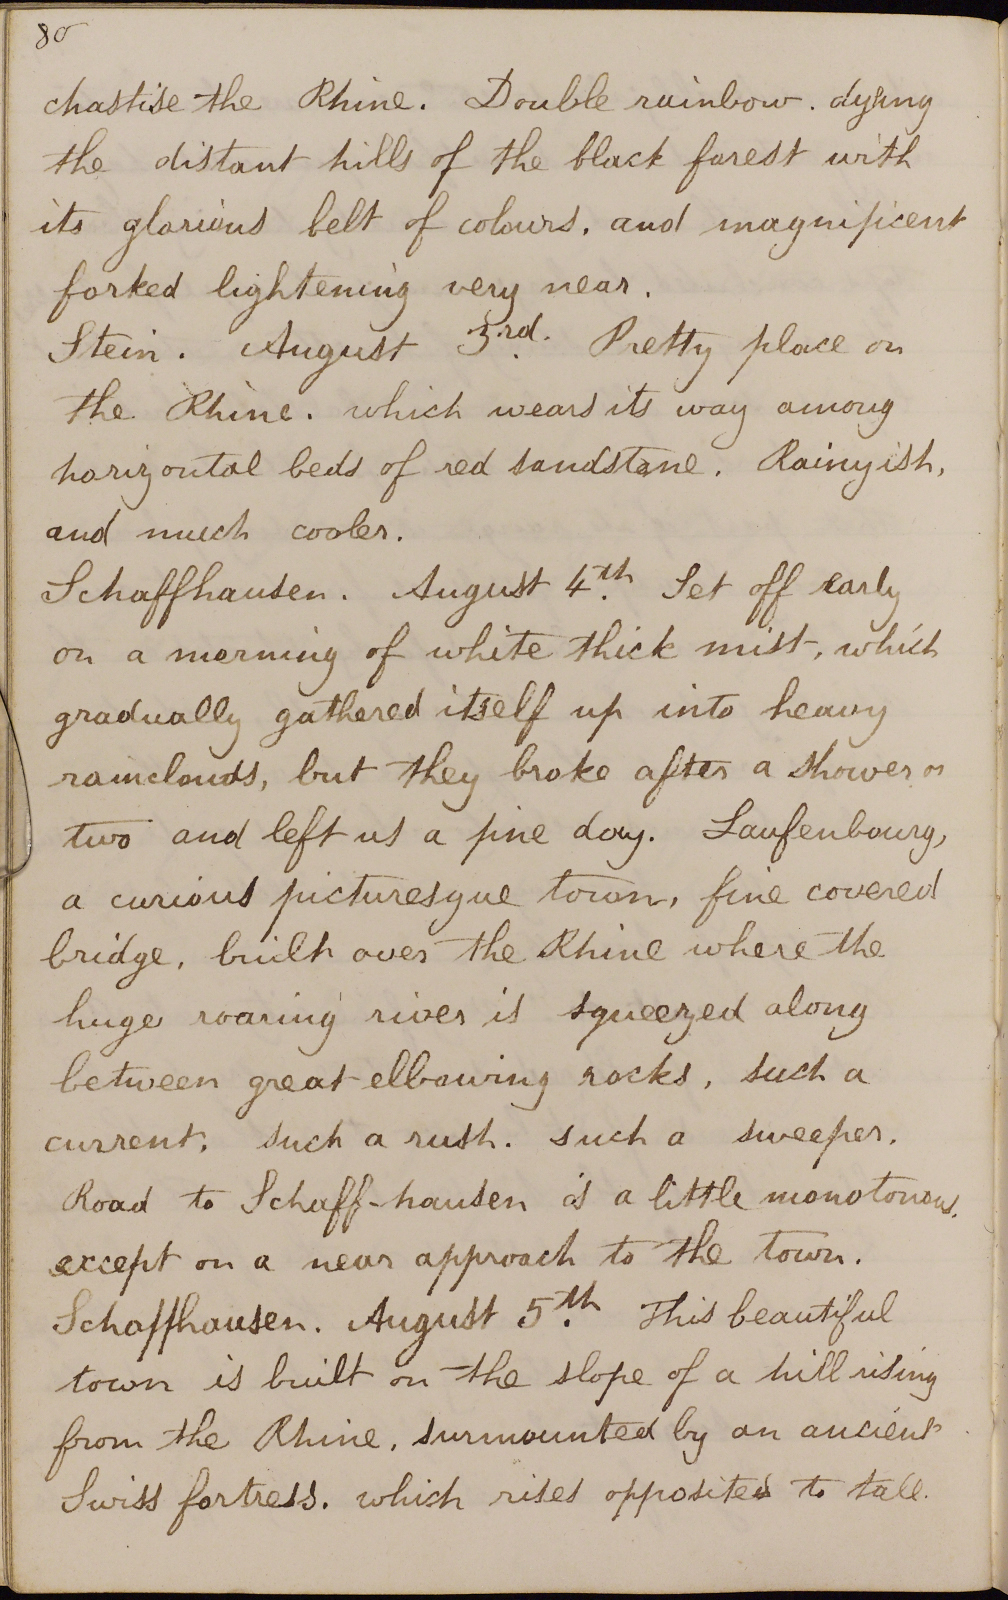 80
chastise the Rhine. Double rainbow. dyeing
the distant hills of the black forest with
its glorious belt of colours, and magnificent
forked lightening very near.
Stein. August 3rd. Pretty place on
the Rhine. which wears its way among
horizontal beds of red sandstone. Rainyish,
and much cooler.
Schaffhausen. August 4th. Set off early
on a morning of white thick mist, which
gradually gathered itself up into heavy
rainclouds, but they broke after a shower or
two and left us a fine day. Laufenbourg,
a curious picturesque town, fine covered
bridge, built over the Rhine where the
huge roaring river is squeezed along
between great elbowing rocks, such a
current, such a rush. such a sweeper.
Road to Schaff-hausen is a little monotonous.
except on a near approach to the town.
Schaffhausen. August 5th. This beautiful
town is built on the slope of a hill rising
from the Rhine, surmounted by an ancient
Swiss fortress. which rises opposite to tall